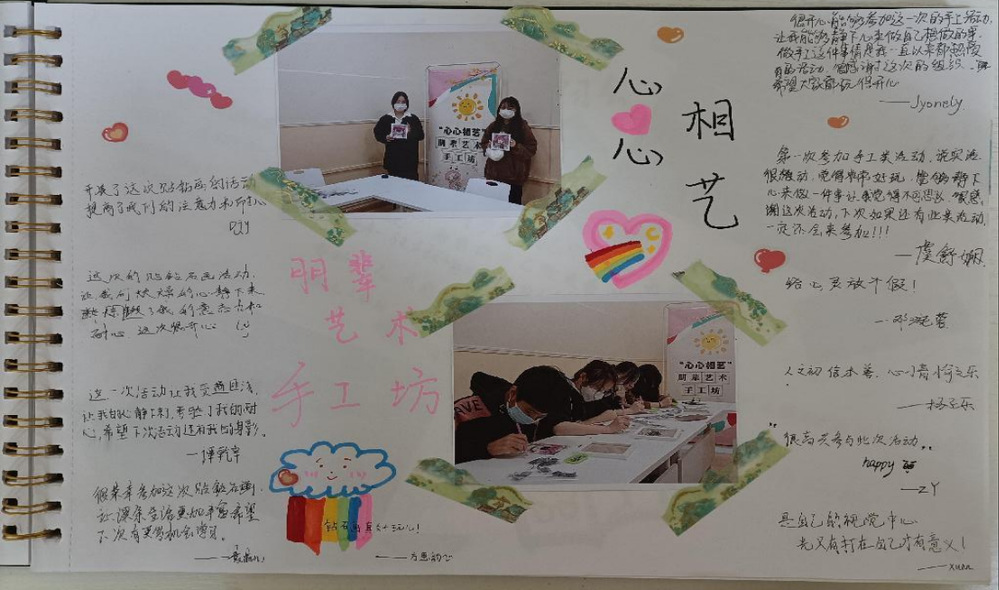 开展了这次贴钻画的活动
提高了我们的注意力和耐心
这次的贴钻石画活动,
让我们烦燥的心静下来
耐心 这次很开心
这一次活动让我受益匪浅,
让我的心静下来,考验了我的耐
心,希望下次活动还有我的身影。
—谭乾
很荣幸参加这次贴钻石画,
让课余生活更加丰富希望
下次有更多机会学习。
心心
相艺
朋辈
艺术
手工坊
“心心相艺”
朋辈艺术
手工坊
“心心相艺”
朋辈艺术
手工坊
钻石画真好玩儿!
很开心能够参加这一次的手工活动,
让我能够静下心来做自己想做的事,
做手工这件事情是我一直以来都热爱
的活动,很感谢这次的组织,
希望大家都玩得开心
——Jyonely
第一次参加手工类活动,说实话
很激动,觉得非常好玩,能够静下
心来做一件事让我觉得不可思议,很感
谢这次活动,下次如果还有此类活动,
一定还会来参加!!!
—虞舒娴
给心灵放个假!
人之初信本善,心小最愉之乐
—杨子乐
“很高兴参与此次活动”
happy
—ZY
是自己的视觉中心
光只有打在自己才有意义!
——xuan